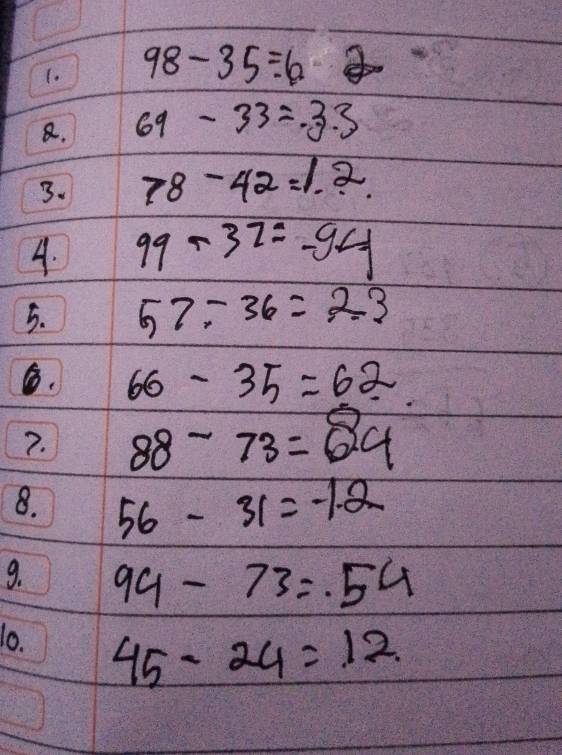 1. 98 - 35 = 6 2
2. 69 - 33 = 33
3. 78 - 42 = 12.
4. 99 - 37 = 94
5. 57 - 36 = 23
6. 66 - 35 = 62.
7. 88 - 73 = 64
8. 56 - 31 = 12
9. 94 - 73 = 54
10. 45 - 24 = 12.